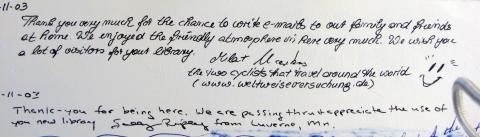 -11-03
Thank you very much for the chance to write e-mails to our family and friends
at home. We enjoyed the friendly atmosphere in here very much. We wish you
a lot of visitors for your library.
the two cyclists that travel around the world
(www.weltweiseversuchung.de)
-11-03
Thank-you for being here. We are passing thru + appreciate the use of
you new library from Luverne, Mn.